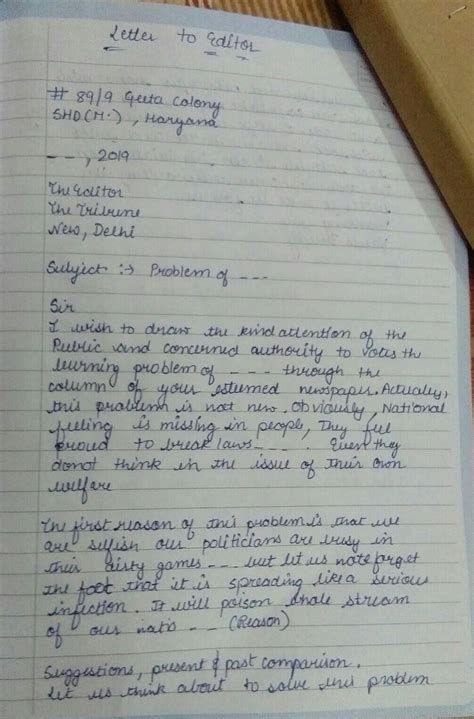 Letter to Editor
# 89/9 Geeta Colony
SHD (M.) , Haryana
-- , 2019
The Editor
The Tribune
New, Delhi
Subject :-> Problem of ---
Sir
I wish to draw the kind attention of the
Public and concerned authority to votes the
burning problem of --- through the
column of your esteemed newspaper. Actually,
this problem is not new. Obviously, National
feeling is missing in people, They ful
proud to break laws ---- . Even they
donot think in the issue of their own
welfare
The first reason of this problem is that we
are selfish our politicians are busy in
their dirty games --- but let us note forget
the foot that it is spreading like a serious
infection. It will poison whole stream
of our natio -- (Reason)
Suggestions, present & past comparison.
let us think about to solve this problem